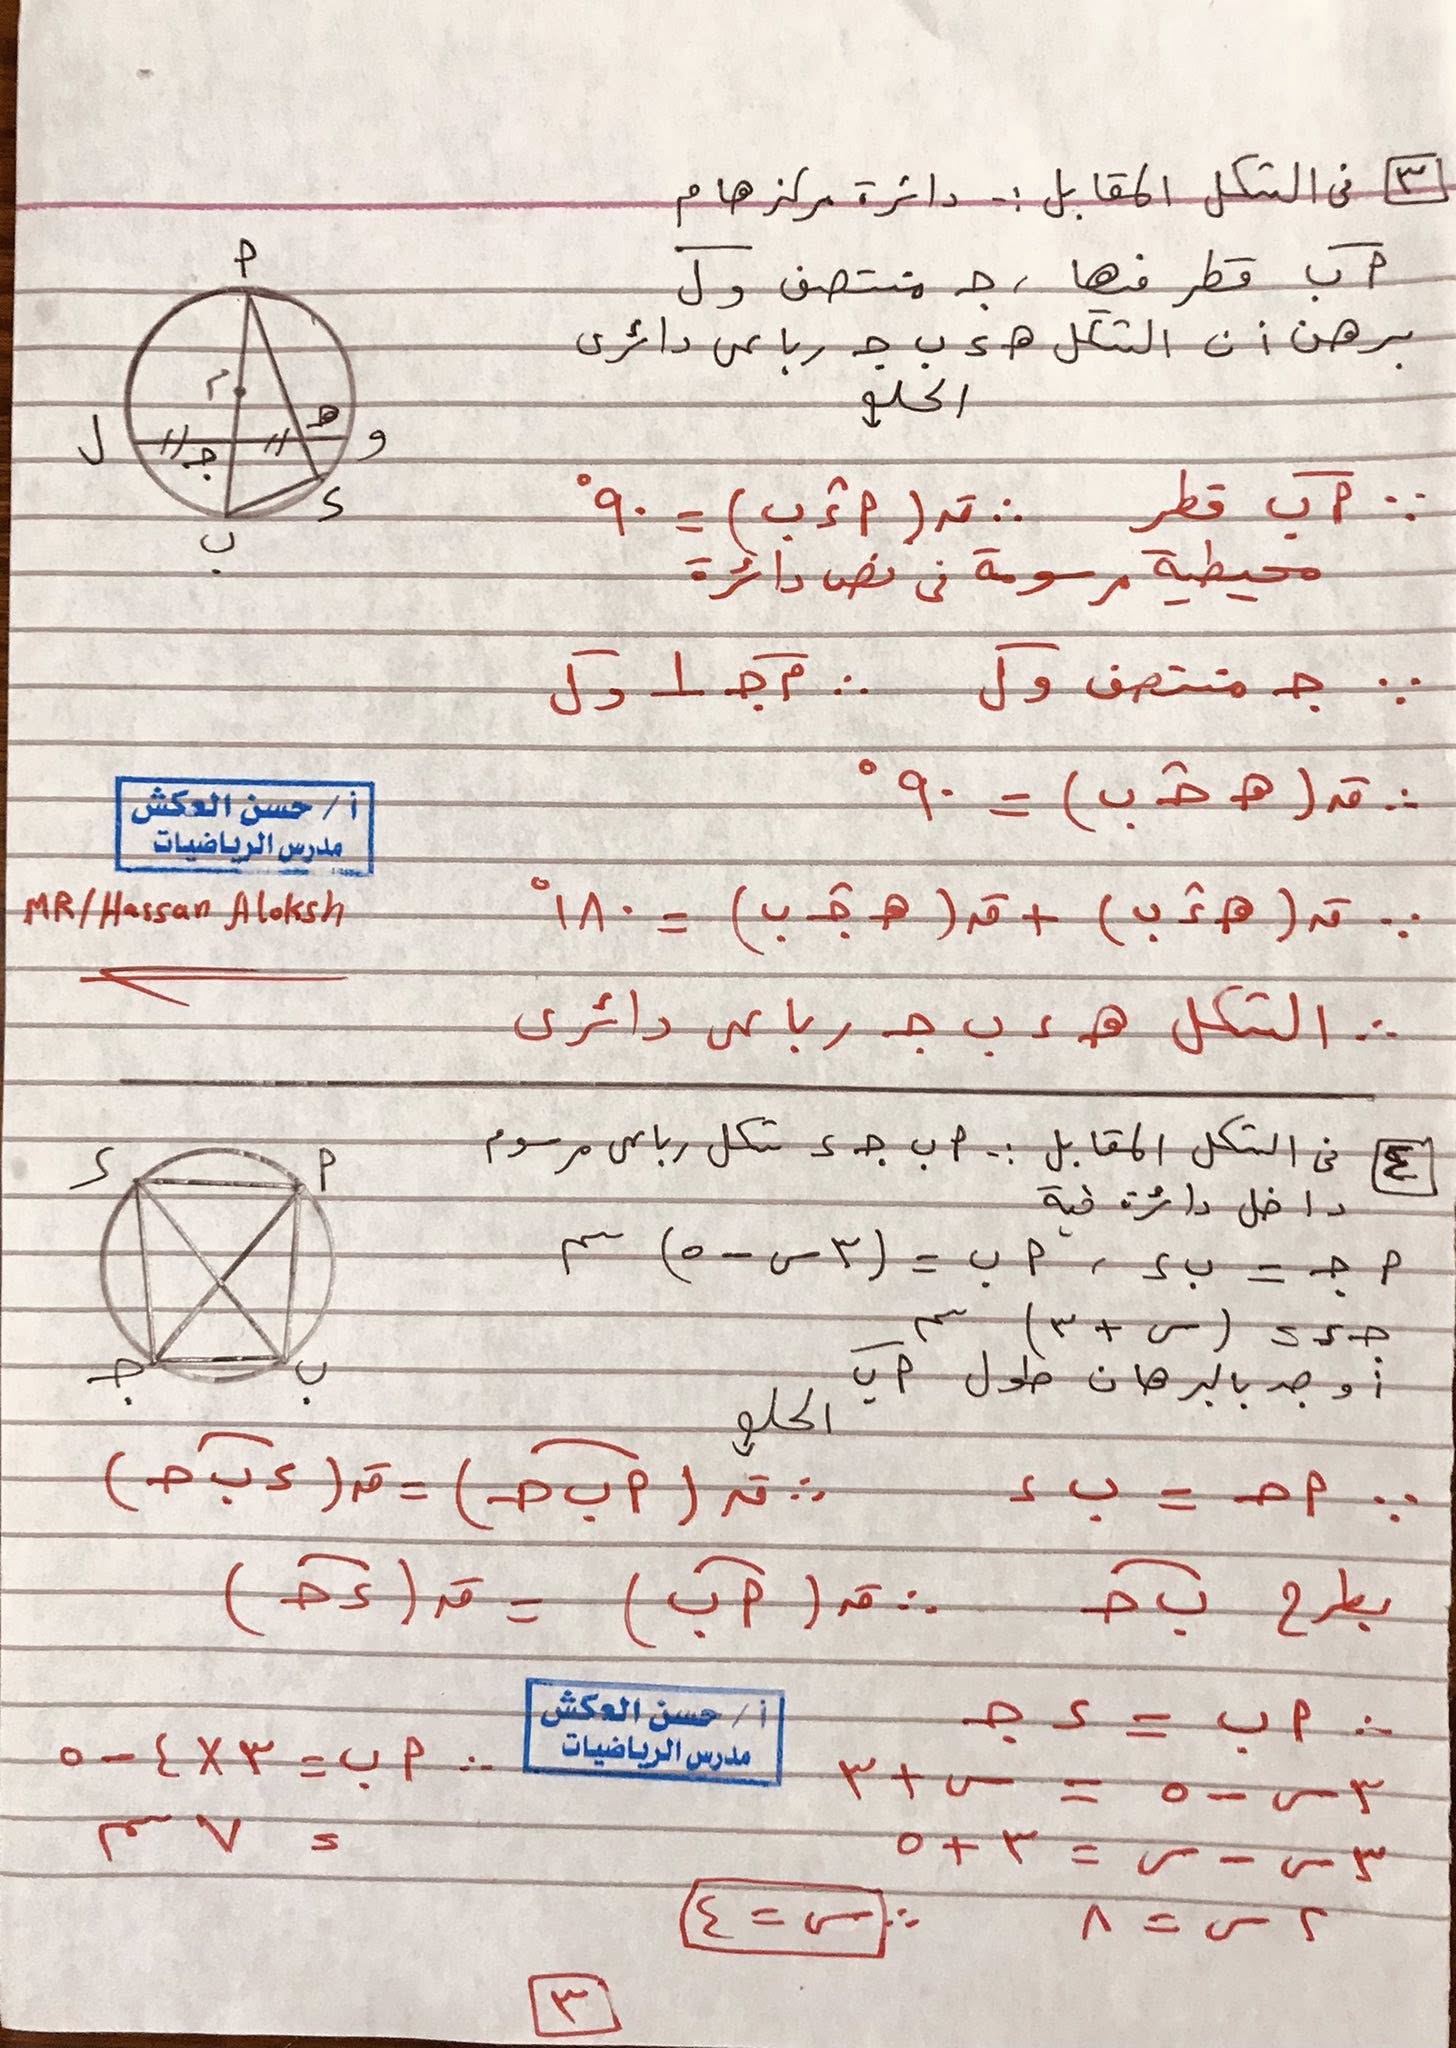 ٣ فى الشكل المقابل :- دائرة مركزها م
أب قطر فيها ، جـ منتصف و ل
برهن أن الشكل هـ ء ب جـ رباعى دائرى
الحل
أ
م
هـ
و
ل
جـ
ء
ب
∵ أب قطر ∴ قـ(أ ء ب) = ٩٠°
محيطية مرسومة فى نصف دائرة
∵ جـ منتصف و ل ∴ م جـ ⊥ و ل
∴ قـ(هـ جـ ب) = ٩٠°
أ/ حسن العكش
مدرس الرياضيات
MR/Hassan Aloksh
∵ قـ(هـ ء ب) + قـ(هـ جـ ب) = ١٨٠°
∴ الشكل هـ ء ب جـ رباعى دائرى
٤ فى الشكل المقابل :- أ ب جـ ء شكل رباعى مرسوم
داخل دائرة فية
أ جـ = ب ء ، أ ب = (٣س - ٥) سم
جـ ء = (س + ٣) سم
أوجد بالبرهان طول أب
الحل
ء
أ
جـ
ب
∵ أ جـ = ب ء ∴ قـ(أ ب جـ) = قـ(ء ب جـ)
بطرح ب جـ ∴ قـ(أ ب) = قـ(ء جـ)
∴ أ ب = ء جـ
أ/ حسن العكش
مدرس الرياضيات
٣س - ٥ = س + ٣
٣س - س = ٣ + ٥
٢س = ٨ ∴ س = ٤
∴ أ ب = ٣ × ٤ - ٥
= ٧ سم
٣